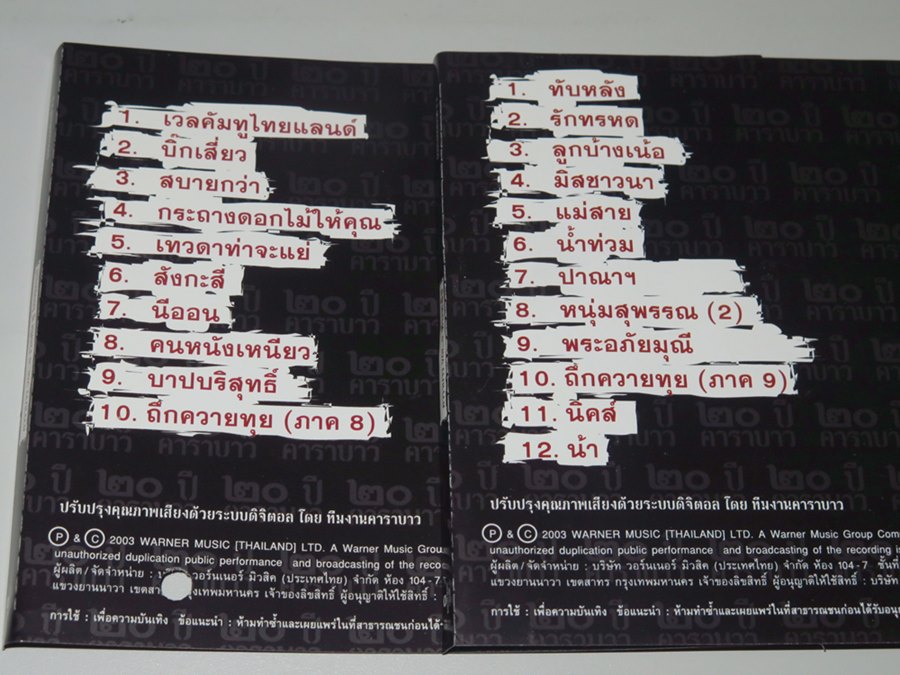 1. เวลคัมทูไทยแลนด์
2. บิ๊กเสี่ยว
3. สบายกว่า
4. กระถางดอกไม้ให้คุณ
5. เทวดาท่าจะแย่
6. สังกะสี
7. นีออน
8. คนหนังเหนียว
9. บาปบริสุทธิ์
10. ถึกควายทุย (ภาค 8)
ปรับปรุงคุณภาพเสียงด้วยระบบดิจิตอล โดย ทีมงานคาราบาว
P & C 2003 WARNER MUSIC [THAILAND] LTD. A Warner Music Grou
unauthorized duplication public performance and broadcasting of the recor
ผู้ผลิต/จัดจำหน่าย : วอร์นเนอร์ มิวสิค (ประเทศไทย) จำกัด ห้อง 104-7
แขวงยานนาวา เขตสาทร กรุงเทพมหานคร เจ้าของลิขสิทธิ์ ผู้อนุญาตให้ใช้สิทธิ์ :
การใช้ : เพื่อความบันเทิง ข้อแนะนำ : ห้ามทำซ้ำและเผยแพร่ในที่สาธารณชนก่อนได้
1. ทับหลัง
2. รักทรหด
3. ลูกบ้างเน้อ
4. มิสชาวนา
5. แม่สาย
6. น้ำท่วม
7. ปาณาฯ
8. หนุ่มสุพรรณ (2)
9. พระอภัยมุณี
10. ถึกควายทุย (ภาค 9)
11. นิคส์
12. น้า
ปรับปรุงคุณภาพเสียงด้วยระบบดิจิตอล โดย ทีมงานคาราบาว
P & C 2003 WARNER MUSIC [THAILAND] LTD. A Warner Music Group Com
unauthorized duplication public performance and broadcasting of the recording i
ผู้ผลิต/จัดจำหน่าย : บริษัท วอร์นเนอร์ มิวสิค (ประเทศไทย) จำกัด ห้อง 104-7 ชั้นที่
แขวงยานนาวา เขตสาทร กรุงเทพมหานคร เจ้าของลิขสิทธิ์ ผู้อนุญาตให้ใช้สิทธิ์ : บริษัท
การใช้ : เพื่อความบันเทิง ข้อแนะนำ : ห้ามทำซ้ำและเผยแพร่ในที่สาธารณชนก่อนได้รับอนุ
๒๐ ปี
คาราบาว